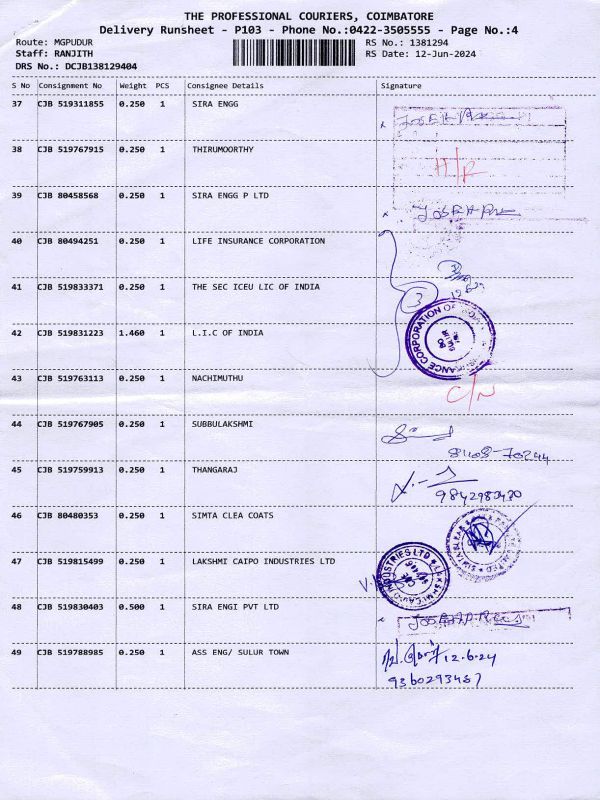 THE PROFESSIONAL COURIERS, COIMBATORE
Delivery Runsheet - P103 - Phone No.:0422-3505555 - Page No.:4
Route: MGPUDUR
RS No.: 1381294
Staff: RANJITH
RS Date: 12-Jun-2024
DRS No.: DCJB138129404
S No Consignment No Weight PCS Consignee Details Signature
37 CJB 519311855 0.250 1 SIRA ENGG
38 CJB 519767915 0.250 1 THIRUMOORTHY
39 CJB 80458568 0.250 1 SIRA ENGG P LTD
40 CJB 80494251 0.250 1 LIFE INSURANCE CORPORATION
41 CJB 519833371 0.250 1 THE SEC ICEU LIC OF INDIA
3
42 CJB 519831223 1.460 1 L.I.C OF INDIA
43 CJB 519763113 0.250 1 NACHIMUTHU
C/N
44 CJB 519767905 0.250 1 SUBBULAKSHMI
45 CJB 519759913 0.250 1 THANGARAJ
46 CJB 80480353 0.250 1 SIMTA CLEA COATS
47 CJB 519815499 0.250 1 LAKSHMI CAIPO INDUSTRIES LTD
48 CJB 519830403 0.500 1 SIRA ENGI PVT LTD
49 CJB 519788985 0.250 1 ASS ENG/ SULUR TOWN
12.6.24
9360293487